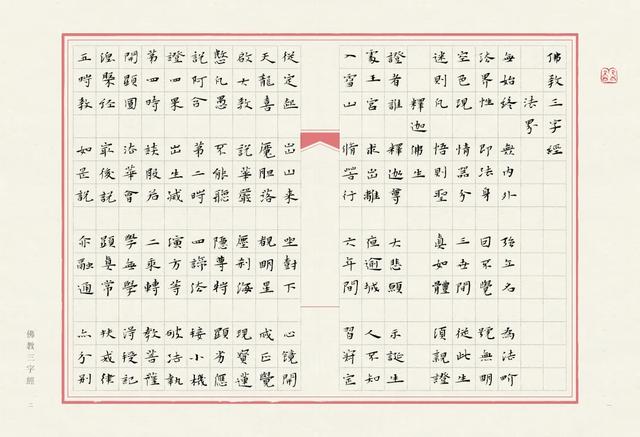 佛教三字經
法界
無始終 無內外 強立名 為法界
法界性 即法身 因不覺 號無明
空色現 情器分 三世間 從此生
迷則凡 悟則聖 真如體 須親證
釋迦佛生
證者誰 釋迦尊 大悲願 示誕生
處王宮 求出離 夜逾城 人不知
入雪山 修苦行 六年間 習禪定
從定起 出山來 坐對下 心鏡開
天龍喜 魔膽落 覩明星 成正覺
啟大教 說華嚴 歷剎海 現寶蓮
愍凡愚 不能聽 隱尊特 顯劣應
說阿含 第二時 四諦法 接小機
證四果 出生滅 演方等 破法執
第四時 談般若 二乘轉 教菩薩
開顯圓 法華會 學無學 得授記
涅槃經 最後說 顯真常 扶戒律
五時教 如是說 亦融通 亦分別
佛教三字經
二
一